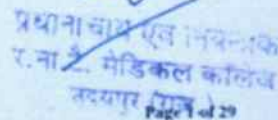 प्रधानाचार्य एवं नियन्त्रक
र.ना.टै. मेडिकल कॉलेज
उदयपुर (राज.)
Page 1 of 29